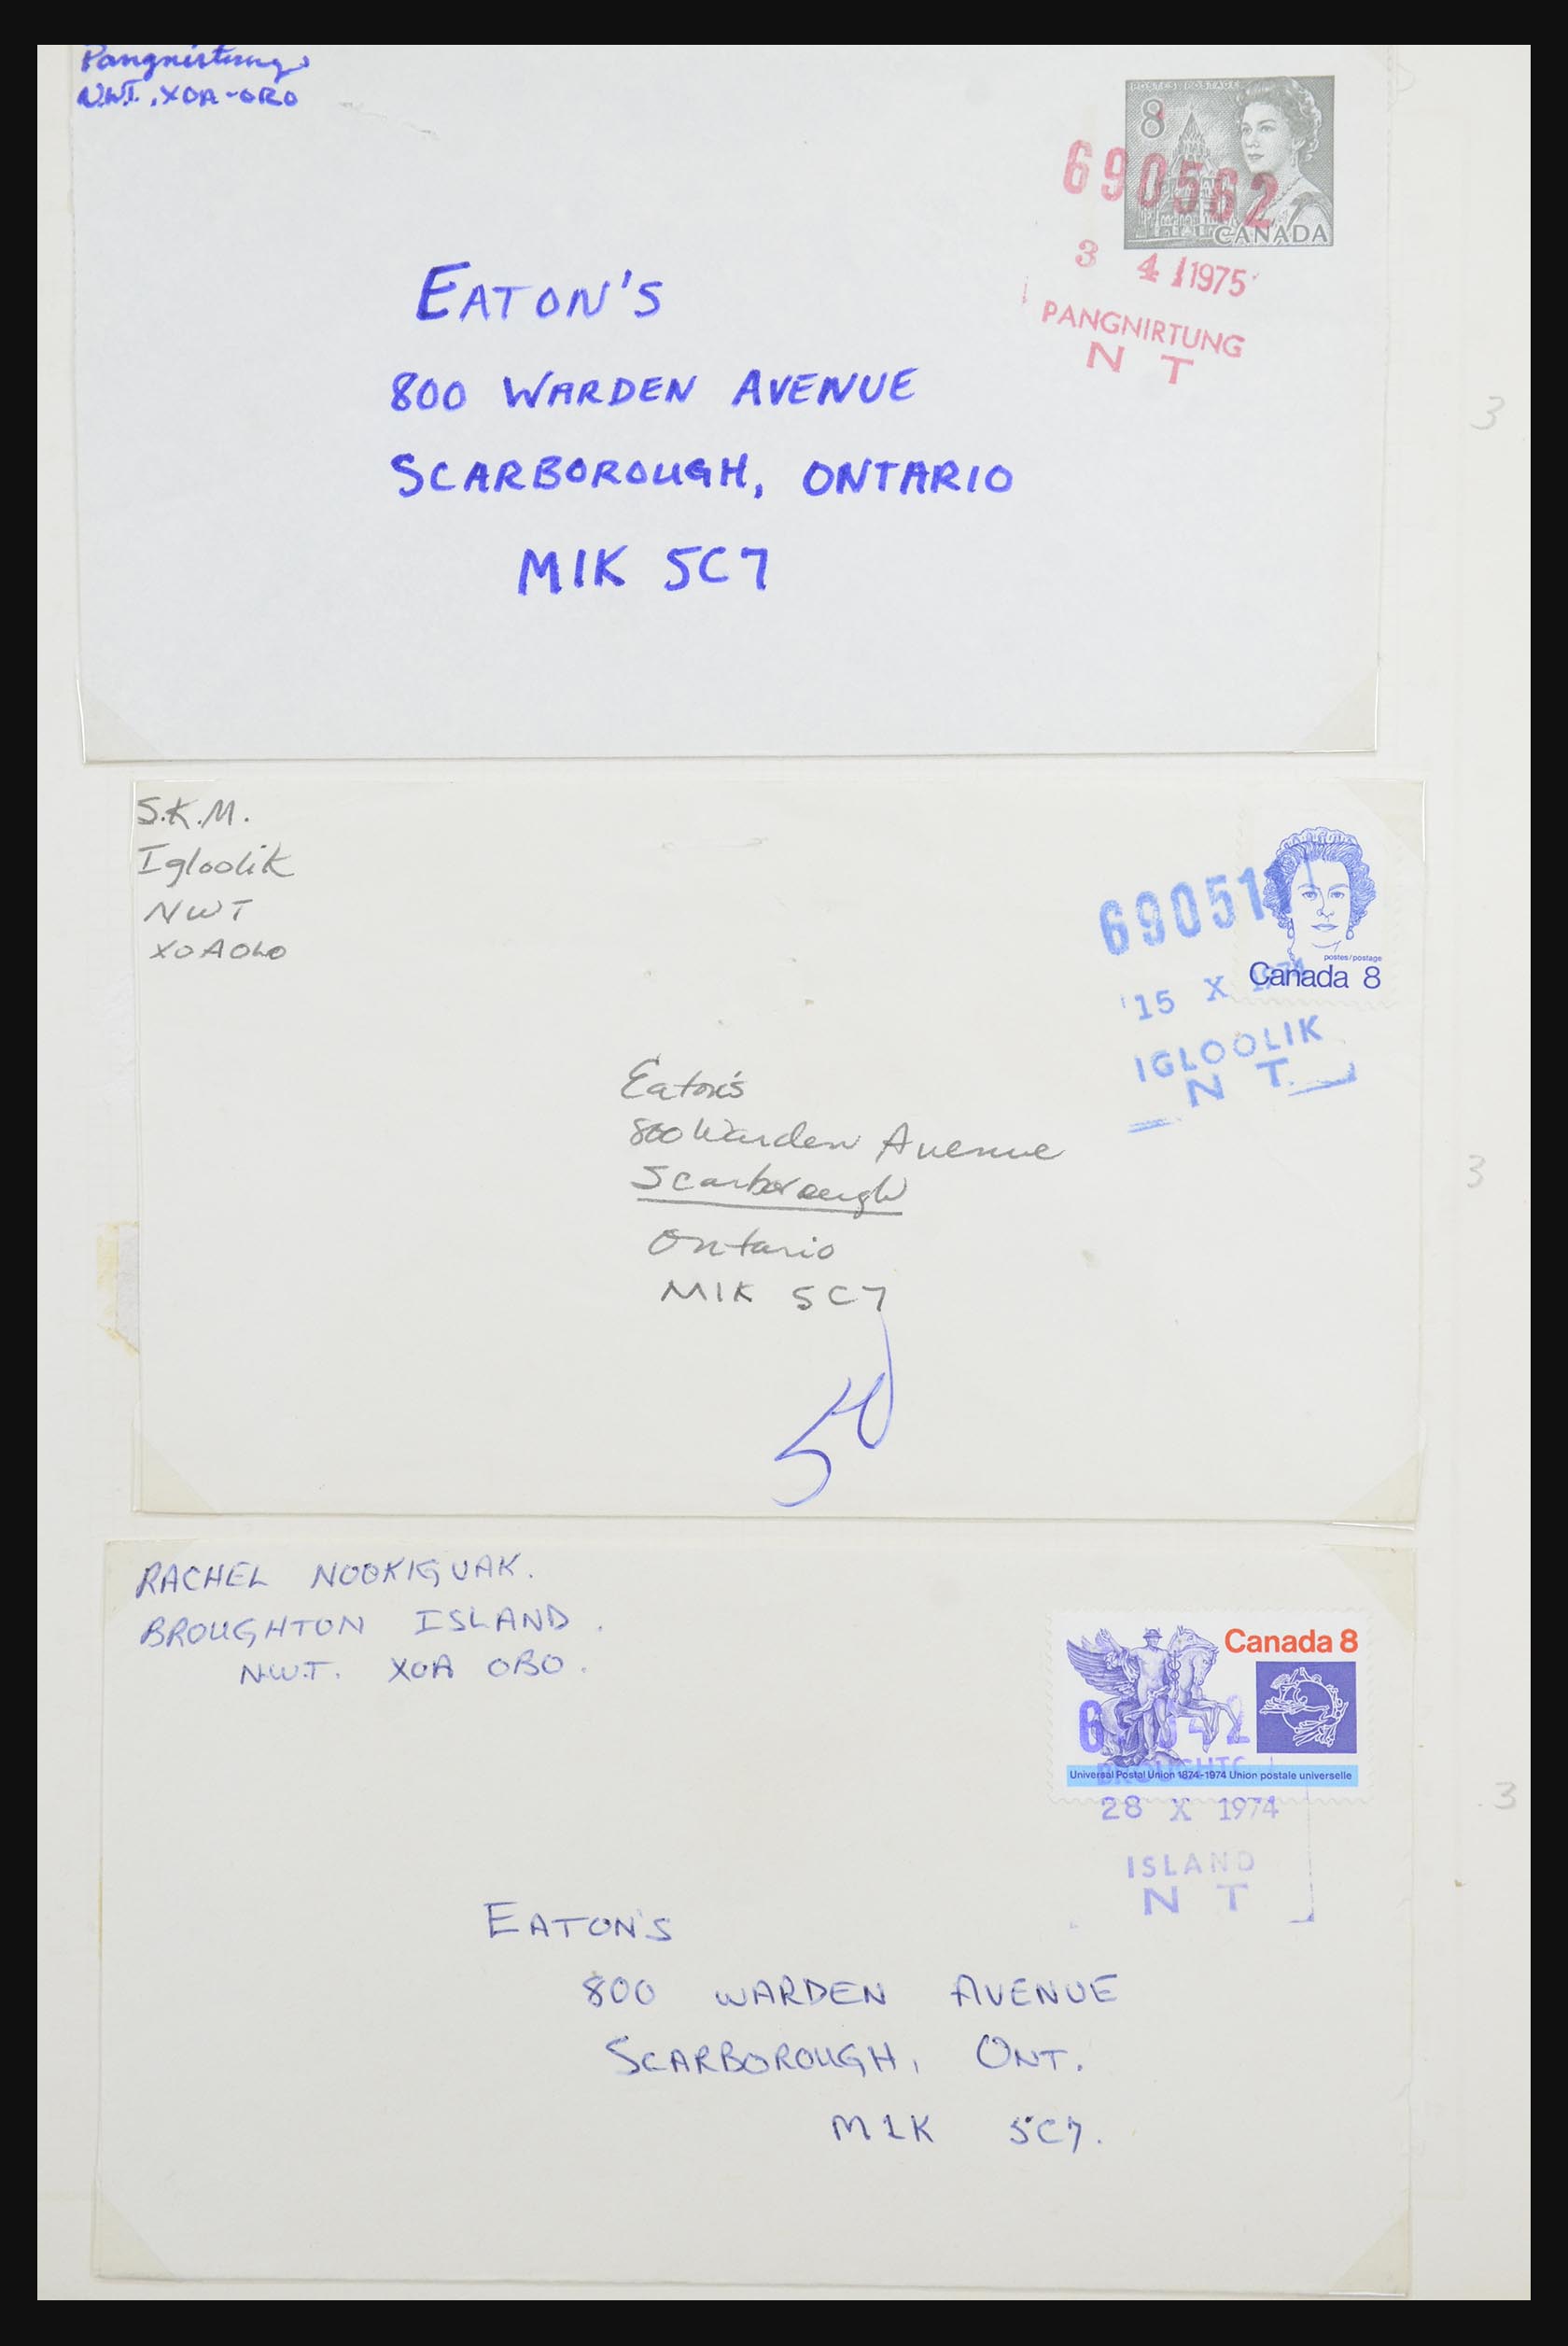 Pangnirtung
N.W.T., XOA-ORO
POSTES POSTAGE
8
CANADA
690562
3 4 1975
PANGNIRTUNG
N T
EATON'S
800 WARDEN AVENUE
SCARBOROUGH, ONTARIO
M1K 5C7
3
S.K.M.
Igloolik
NWT
XOA0L0
postes/postage
Canada 8
690511
15 X 1974
IGLOOLIK
N T
Eaton's
800 Warden Avenue
Scarborough
Ontario
M1K 5C7
3
RACHEL NOOKIGUAK.
BROUGHTON ISLAND.
N.W.T. XOA OBO.
Canada 8
Universal Postal Union 1874-1974 Union postale universelle
28 X 1974
ISLAND
N T
3
EATON'S
800 WARDEN AVENUE
SCARBOROUGH, ONT.
M1K 5C7.